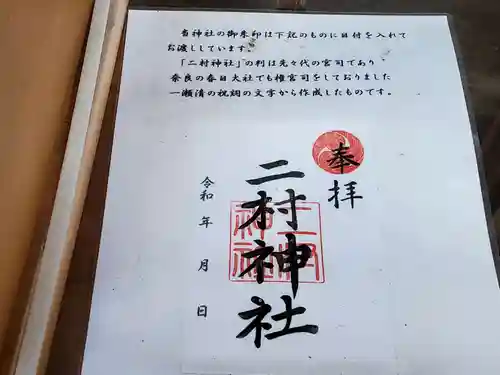 当神社の御朱印は下記のものに日付を入れて
お渡ししています。
「二村神社」の判は先々代の宮司であり、
奈良の春日大社でも権宮司をしておりました
一瀬清の祝詞の文字から作成したものです。
奉拝
二村神社
二村
神社
令和 年 月 日